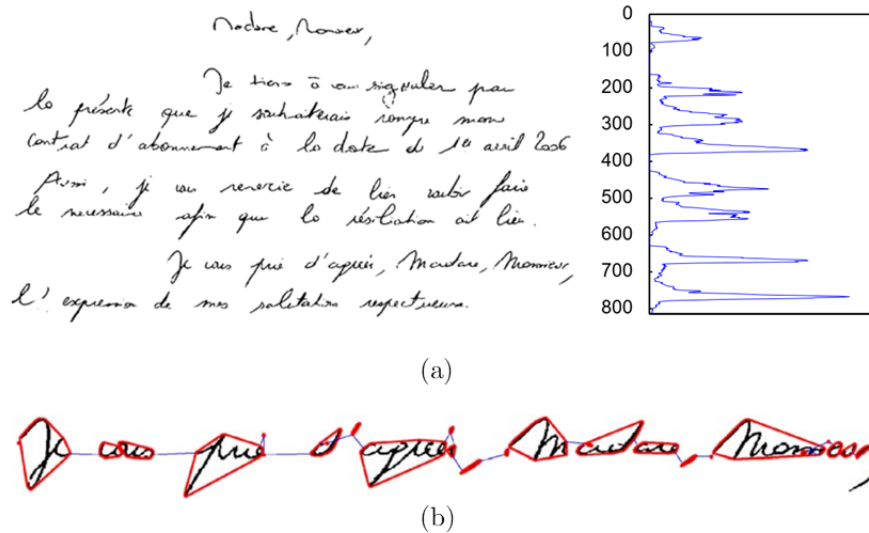 Madame, Monsieur,
Je tiens à vous signaler par
la présente que je souhaiterais rompre mon
contrat d'abonnement à la date du 1er avril 2006
Aussi, je vous remercie de bien vouloir faire
le nécessaire afin que la résiliation ait lieu.
Je vous prie d'agréer, Madame, Monsieur,
l'expression de mes salutations respectueuses.
0
100
200
300
400
500
600
700
800
(a)
Je vous prie d'agréer Madame Monsieur,
(b)